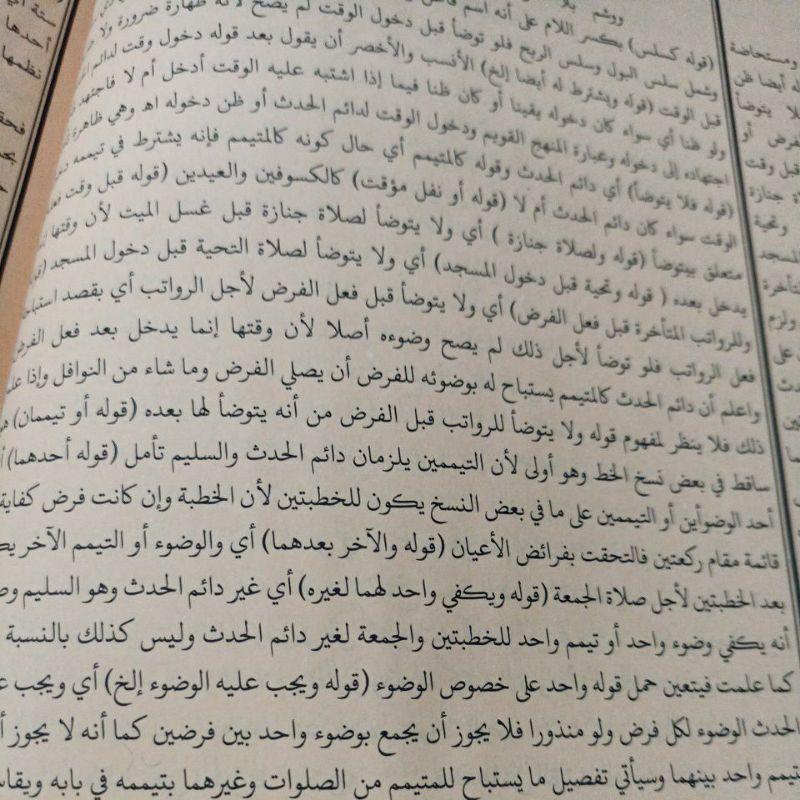 ووشم
(قوله كسلس) بكسر اللام على أنه اسم
وشمل سلس البول وسلس الريح فلو توضأ قبل دخول الوقت لم يصح لأنه طهارة ضرورة ولا
قبل الوقت (قوله ويشترط له أيضا إلخ) الأنسب والأخصر أن يقول بعد قوله دخول وقت لدائم
ولو ظنا أي سواء كان دخوله يقينا أو كان ظنا فيما إذا اشتبه عليه الوقت أدخل أم لا فاجتهد
اجتهاده إلى دخوله وعبارة المنهج القويم ودخول الوقت لدائم الحدث أو ظن دخوله اه وهي ظاهرة
(قوله فلا يتوضأ) أي دائم الحدث وقوله كالمتيمم أي حال كونه كالمتيمم فإنه يشترط في تيممه
الوقت سواء كان دائم الحدث أم لا (قوله أو نفل مؤقت) كالكسوفين والعيدين (قوله قبل وقت
متعلق بيتوضأ (قوله ولصلاة جنازة ) أي ولا يتوضأ لصلاة جنازة قبل غسل الميت لأن وقتها
يدخل بعده ( قوله وتحية قبل دخول المسجد) أي ولا يتوضأ لصلاة التحية قبل دخول المسجد
وللرواتب المتأخرة قبل فعل الفرض) أي ولا يتوضأ قبل فعل الفرض لأجل الرواتب أي بقصد
فعل الرواتب فلو توضأ لأجل ذلك لم يصح وضوءه أصلا لأن وقتها إنما يدخل بعد فعل الفرض
واعلم أن دائم الحدث كالمتيمم يستباح له بوضوئه للفرض أن يصلي الفرض وما شاء من النوافل وإذا
ذلك فلا ينظر لمفهوم قوله ولا يتوضأ للرواتب قبل الفرض من أنه يتوضأ لها بعده (قوله أو تيممان)
ساقط في بعض نسخ الخط وهو أولى لأن التيممين يلزمان دائم الحدث والسليم تأمل (قوله أحدهما)
أحد الوضوأين أو التيممين على ما في بعض النسخ يكون للخطبتين لأن الخطبة وإن كانت فرض كفاية
قائمة مقام ركعتين فالتحقت بفرائض الأعيان (قوله والآخر بعدهما) أي والوضوء أو التيمم الآخر
بعد الخطبتين لأجل صلاة الجمعة (قوله ويكفي واحد لهما لغيره) أي غير دائم الحدث وهو السليم
أنه يكفي وضوء واحد أو تيمم واحد للخطبتين والجمعة لغير دائم الحدث وليس كذلك بالنسبة
كما علمت فيتعين حمل قوله واحد على خصوص الوضوء (قوله ويجب عليه الوضوء إلخ) أي ويجب
الحدث الوضوء لكل فرض ولو منذورا فلا يجوز أن يجمع بوضوء واحد بين فرضين كما أنه لا يجوز
بتيمم واحد بينهما وسيأتي تفصيل ما يستباح للمتيمم من الصلوات وغيرهما بتيممه في بابه